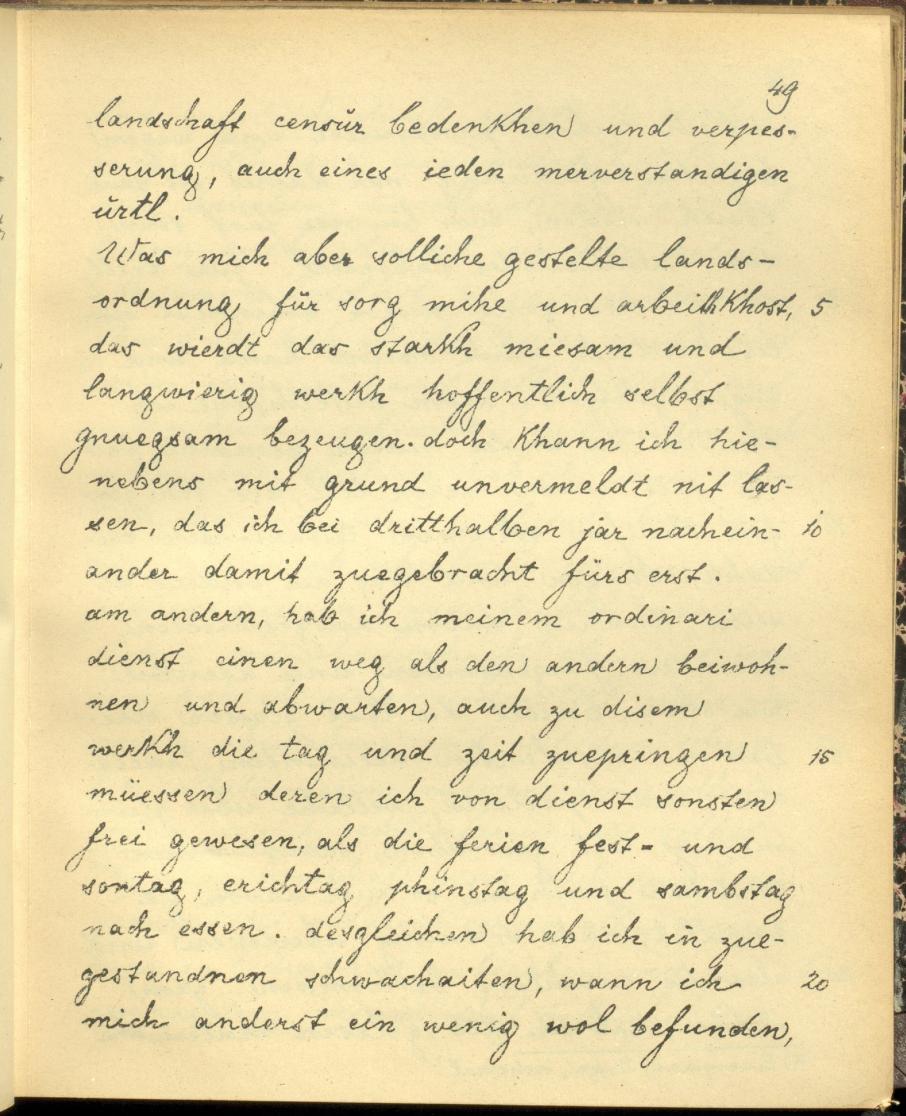 49
landschaft censŭr bedenkhen und verpes-
serung, auch eines ieden merverstandigen
ŭrtl.
Was mich aber solliche gestelte lands-
ordnung für sorg mihe und arbeith khost, 5
das wierdt das starkh miesam und
langwierig werkh hoffentlich selbst
gnuegsam bezeugen. doch khann ich hie-
nebens mit grund unvermeldt nit las-
sen, das ich bei dritthalben jar nachein- 10
ander damit zuegebracht fürs erst.
am andern, hab ich meinem ordinari
dienst einen weg als den andern beiwoh-
nen und abwarten, auch zu disem
werkh die tag und zeit zuepringen 15
müessen deren ich von dienst sonsten
frei gewesen, als die ferien fest- und
sontag, erichtag phinstag und sambstag
nach essen. desgleichen hab ich in zue-
gestandnen schwachaiten, wann ich 20
mich anderst ein wenig wol befunden,